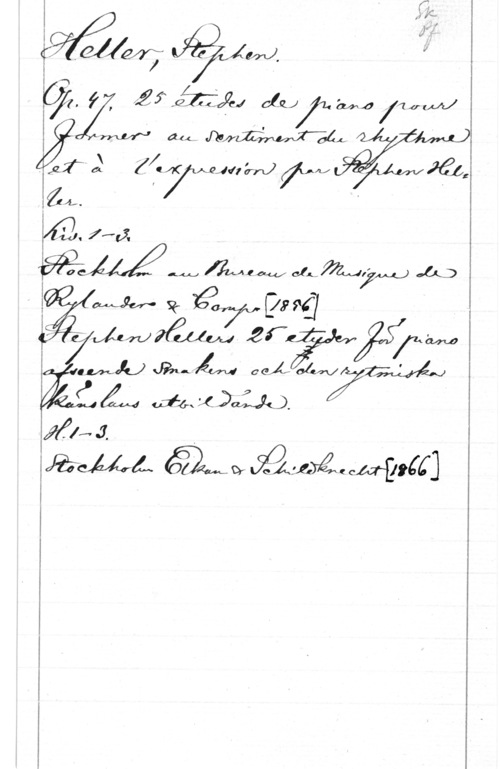 Sk
Pf
Heller, Stephen.
Op. 47. 25 études de piano pour
former au sentiment du rhythme
et à l'expression par Stephen Hel-
ler.
Liv. 1-3.
Stockholm au Bureau de Musique de
Rylander & Comp.
Stephen Hellers 25 etyder för piano
afseende smakens och den rytmiska
känslans utbildande.
H. 1-3.
Stockholm Elkan & Schildknecht [1866]